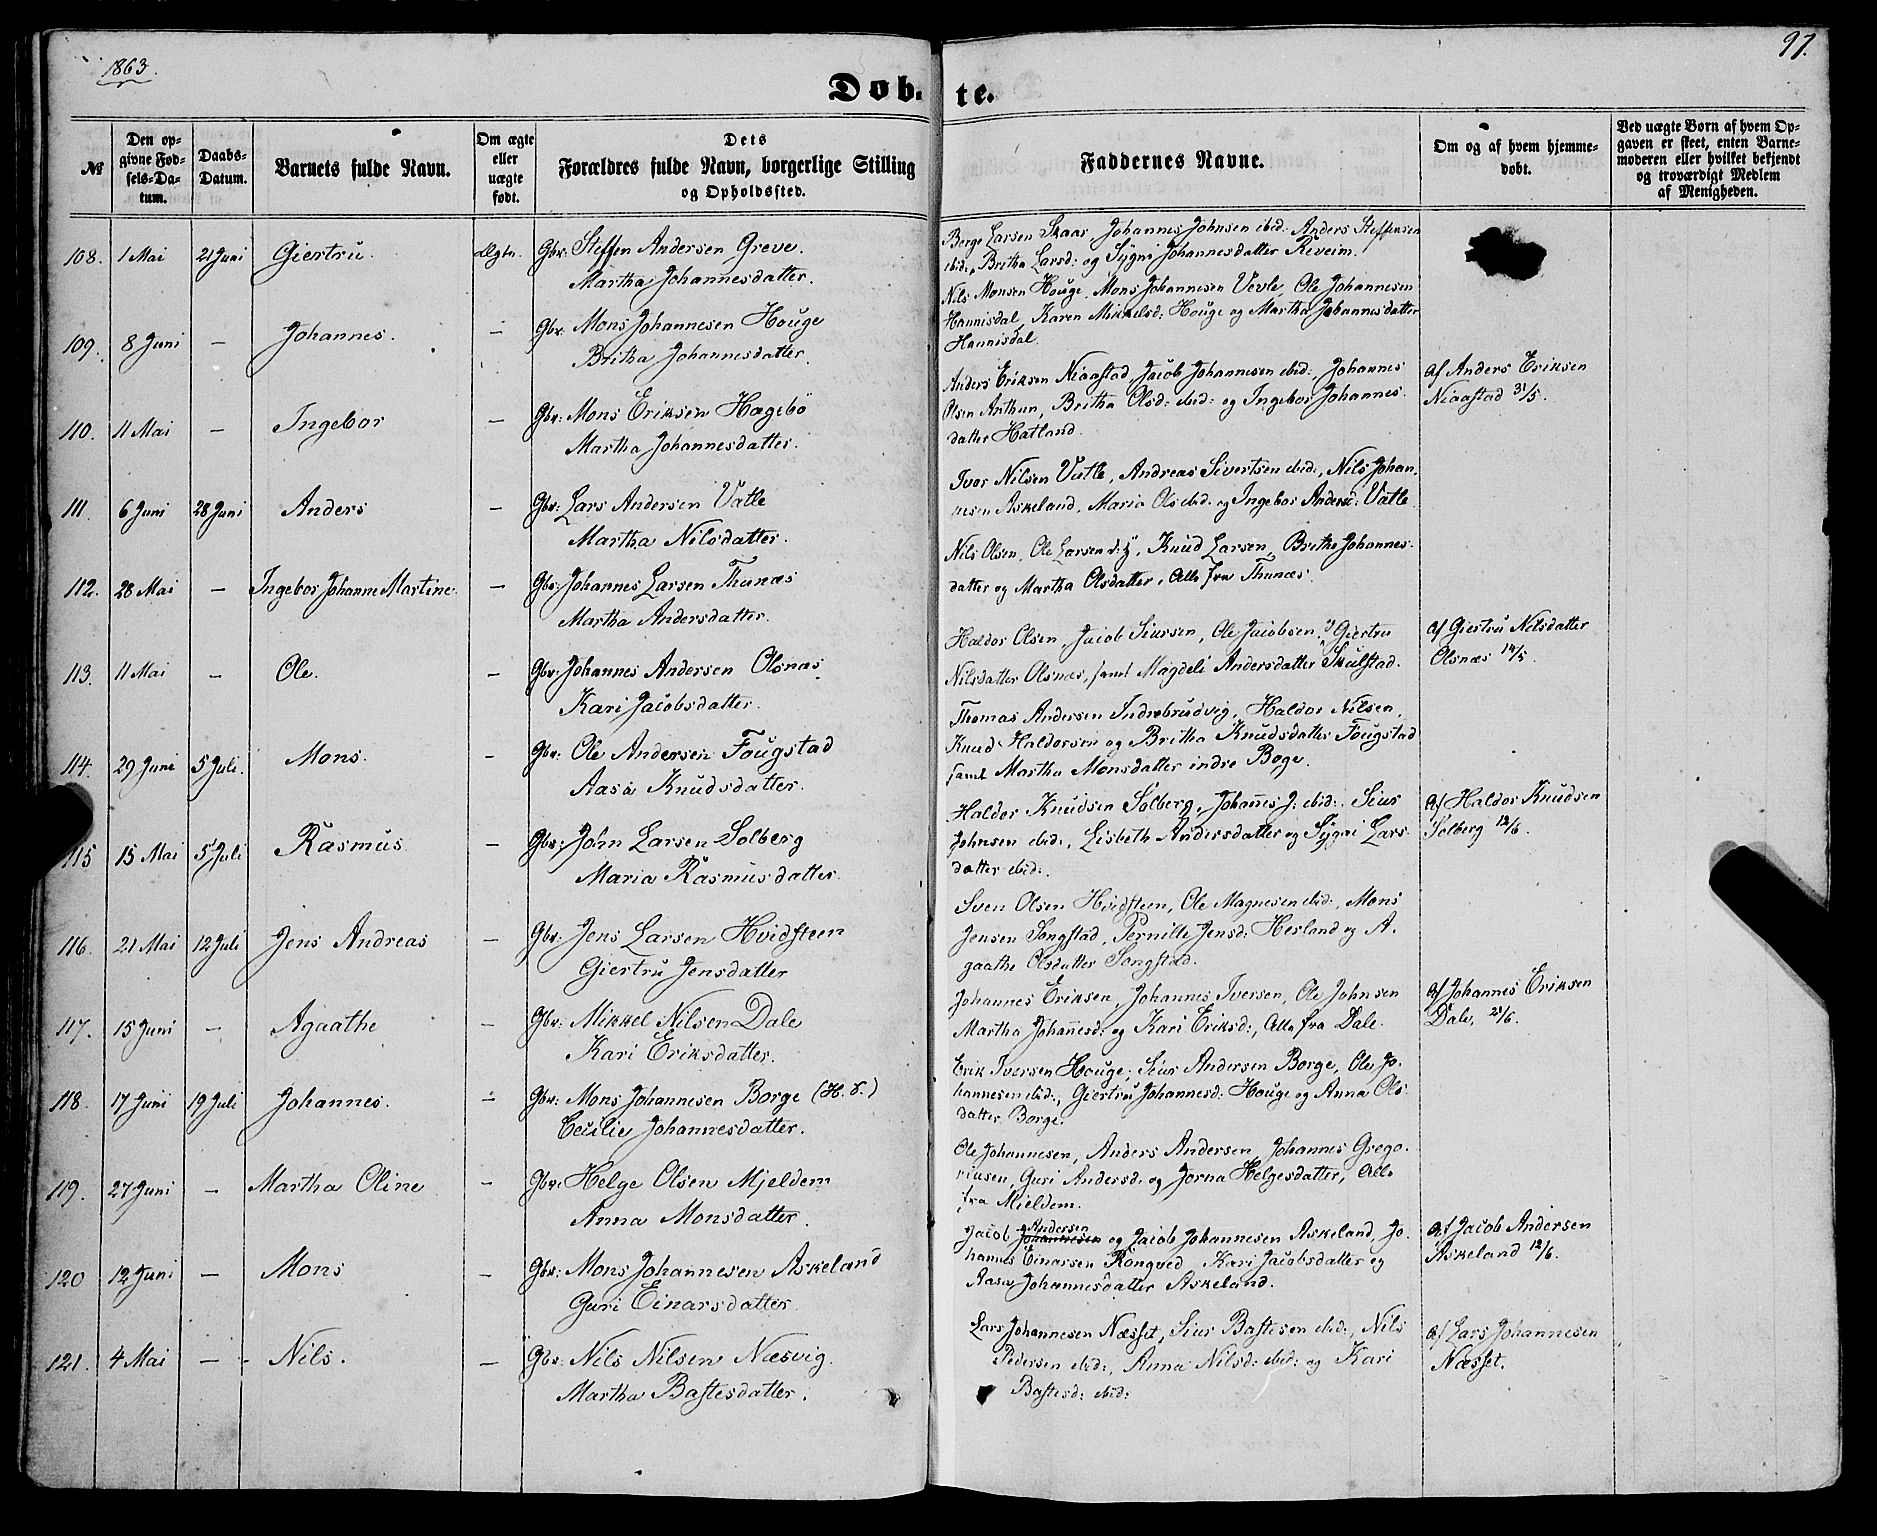 1863.
97.
Døbte.
№
Den opgivne Fødsels-Datum.
Daabs-Datum.
Barnets fulde Navn.
Om ægte eller uægte født.
Dets Forældres fulde Navn, borgerlige Stilling og Opholdssted.
Faddernes Navne.
Om og af hvem hjemmedøbt.
Ved uægte Børn af hvem Opgaven er skeet, enten Barnemoderen eller hvilket bekjendt og troværdigt Medlem af Menigheden.
108. 1 Mai 21 Juni Giertru. Ægte. Gbr: Steffen Andersen Greve.
Martha Johannesdatter.
Børge Larsen Skaar, Johannes Johnsen ibid: Anders Steffensen
ibid:, Britha Larsd: og Sygni Johannesdatter Reveim.
109. 8 Juni — Johannes. — Gbr: Mons Johannesen Houge
Britha Johannesdatter.
Nils Monsen Houge, Mons Johannesen Vevle, Ole Johannesen
Hannisdal, Karen Mikkelsd: Houge og Martha Johannesdatter
Hannisdal.
110. 11 Mai — Ingebor — Gbr: Mons Eriksen Hagebø
Martha Johannesdatter.
Anders Eriksen Niaastad, Jacob Johannesen ibid:, Johannes
Olsen Arthun, Britha Olsd: ibid: og Ingebor Johannes-
datter Hatland.
af Anders Eriksen
Niaastad 31/5.
111. 6 Juni 28 Juni Anders — Gbr: Lars Andersen Vatle
Martha Nilsdatter.
Ivar Nilsen Vatle, Andreas Sivertsen ibid:, Nils Johan-
nesen Askeland, Maria Ols ibid: og Ingebor Andersd: Vatle
112. 28 Mai — Ingebor Johanne Martine. — Gbr: Johannes Larsen Thunæs
Martha Andersdatter.
Nils Olsen, Ole Larsen d: y, Knud Larsen, Brithe Johannes-
datter og Martha Olsdatter, Alle fra Thunæs.
113. 11 Mai — Ole. — Gbr: Johannes Andersen Olsnæs.
Kari Jacobsdatter.
Haldor Olsen, Jacob Siursen, Ole Jacobsen, Giertru
Nilsdatter Olsnæs, samt Magdeli Andersdatter Skulstad.
Af Giertru Nilsdatter
Olsnæs 14/5.
114. 29 Juni 5 Juli. Mons. — Gbr: Ole Andersen Fougstad
Aasa Knudsdatter.
Thomas Andersen Indrebrudvig, Haldor Nilsen,
Knud Haldorsen og Britha Knudsdatter Fougstad
samt Martha Monsdatter indre Boge.
115 15 Mai 5 Juli Rasmus — Gbr: John Larsen Solberg
Maria Rasmusdatter.
Haldor Knudsen Solberg, Johannes J: ibid:, Siur
Johnsen ibid:, Lisbeth Andersdatter og Sygni Lars-
datter ibid:.
Af Haldor Knudsen
Solberg 12/6.
116. 21 Mai 12 Juli Jens Andreas — Gbr: Jens Larsen Hvidsteen
Giertru Jensdatter
Sven Olsen Hvidsteen, Ole Magnesen ibid:, Mons
Jensen Songstad, Pernille Jensd: Herland og A-
gaathe Olsdatter Songstad.
117. 15 Juni — Agaathe — Gbr: Mikkel Nilsen Dale
Kari Eriksdatter.
Johannes Eriksen, Johannes Iversen, Ole Johnsen
Martha Johannesd: og Kari Eriksd:, Alle fra Dale.
Af Johannes Eriksen
Dale, 21/6.
118. 17 Juni 19 Juli Johannes. — Gbr: Mons Johannesen Borge (H. S.)
Cecilie Johannesdatter.
Erik Iversen Houge, Siur Andersen Borge, Ole Jo-
hannesen ibid:, Giertru Johannesd: Houge og Anna Ols-
datter Borge.
119. 27 Juni — Martha Oline — Gbr: Helge Olsen Mjeldem
Anna Monsdatter.
Ole Johannesen, Anders Andersen, Johannes Grego-
riusen, Guri Andersd: og Jorna Helgesdatter, Alle
fra Mieldem.
120 12 Juni — Mons — Gbr: Mons Johannesen Askeland
Guri Einarsdatter.
Jacob Johannesen Andersen og Jacob Johannesen Askeland, Jo-
hannes Einarsen Røngved, Kari Jacobsdatter og
Aasa Johannesdatter Askeland.
Af Jacob Andersen
Askeland 12/6.
121. 4 Mai — Nils. — Gbr: Nils Nilsen Næsvig.
Martha Bastesdatter.
Lars Johannesen Næsset, Siur Bastesen ibid:, Nils
Pedersen ibid:, Anna Nilsd: ibid: og Kari
Bastesd: ibid:
Af Lars Johannesen
Næsset.